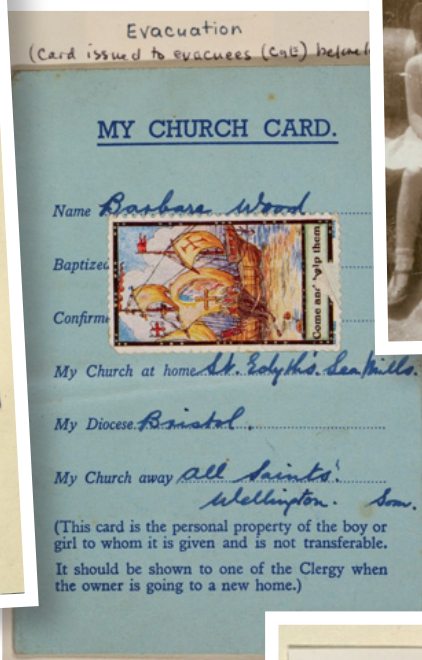 Evacuation
(Card issued to evacuees (CofE) before
MY CHURCH CARD.
Name Barbara Wood
Baptized
Come and help them
Confirm
My Church at home St. Edyth's. Sea Mills.
My Diocese Bristol.
My Church away All Saints'.
Wellington. Som.
(This card is the personal property of the boy or
girl to whom it is given and is not transferable.
It should be shown to one of the Clergy when
the owner is going to a new home.)